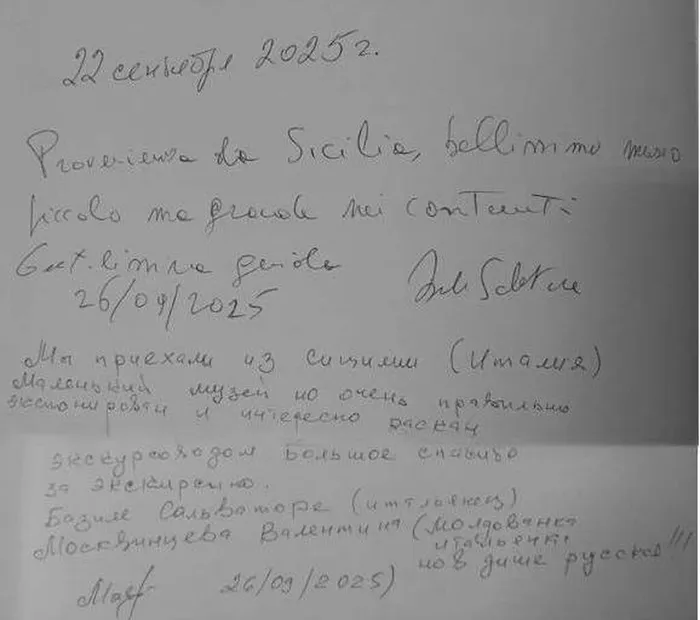 22 сентября 2025 г.
Provenienza da Sicilia, bellissimo museo
piccolo ma grande nei contenuti
guida
26/09/2025
Мы приехали из сицилии (Италия)
Маленький музей но очень правильно
экспонирован и интересно
экскурсоводом Большое спасибо
за
Базиле Сальваторе (итальянец)
Москвинцева Валентина (Молдованка
итальянка
но в душе русская!!!
26/09/2025)